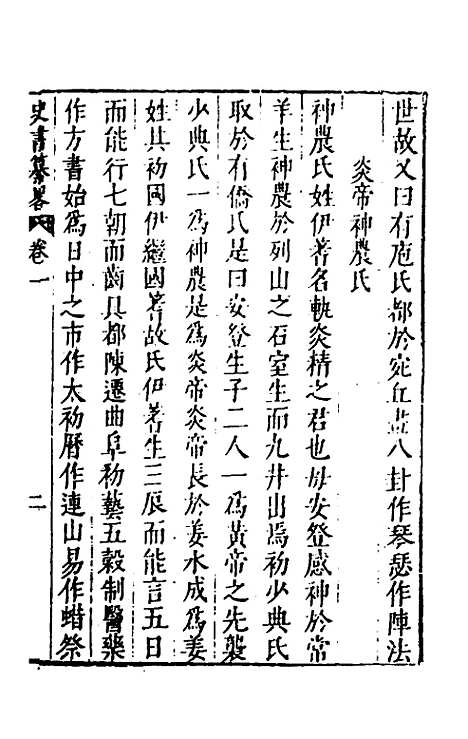 世故又曰有庖氏都於宛丘畫八卦作琴瑟作陣法
炎帝神農氏
神農氏姓伊耆名軌炎精之君也母安登感神於常
羊生神農於列山之石室生而九井出焉初少典氏
取於有僑氏是曰安登生子二人一爲黃帝之先襲
少典氏一爲神農是爲炎帝炎帝長於姜水成爲姜
姓其初國伊繼國耆故氏伊耆生三辰而能言五日
而能行七朝而齒具都陳遷曲阜初藝五穀制醫藥
作方書始爲日中之市作太初曆作連山易作蜡祭
史書纂畧 卷一 二